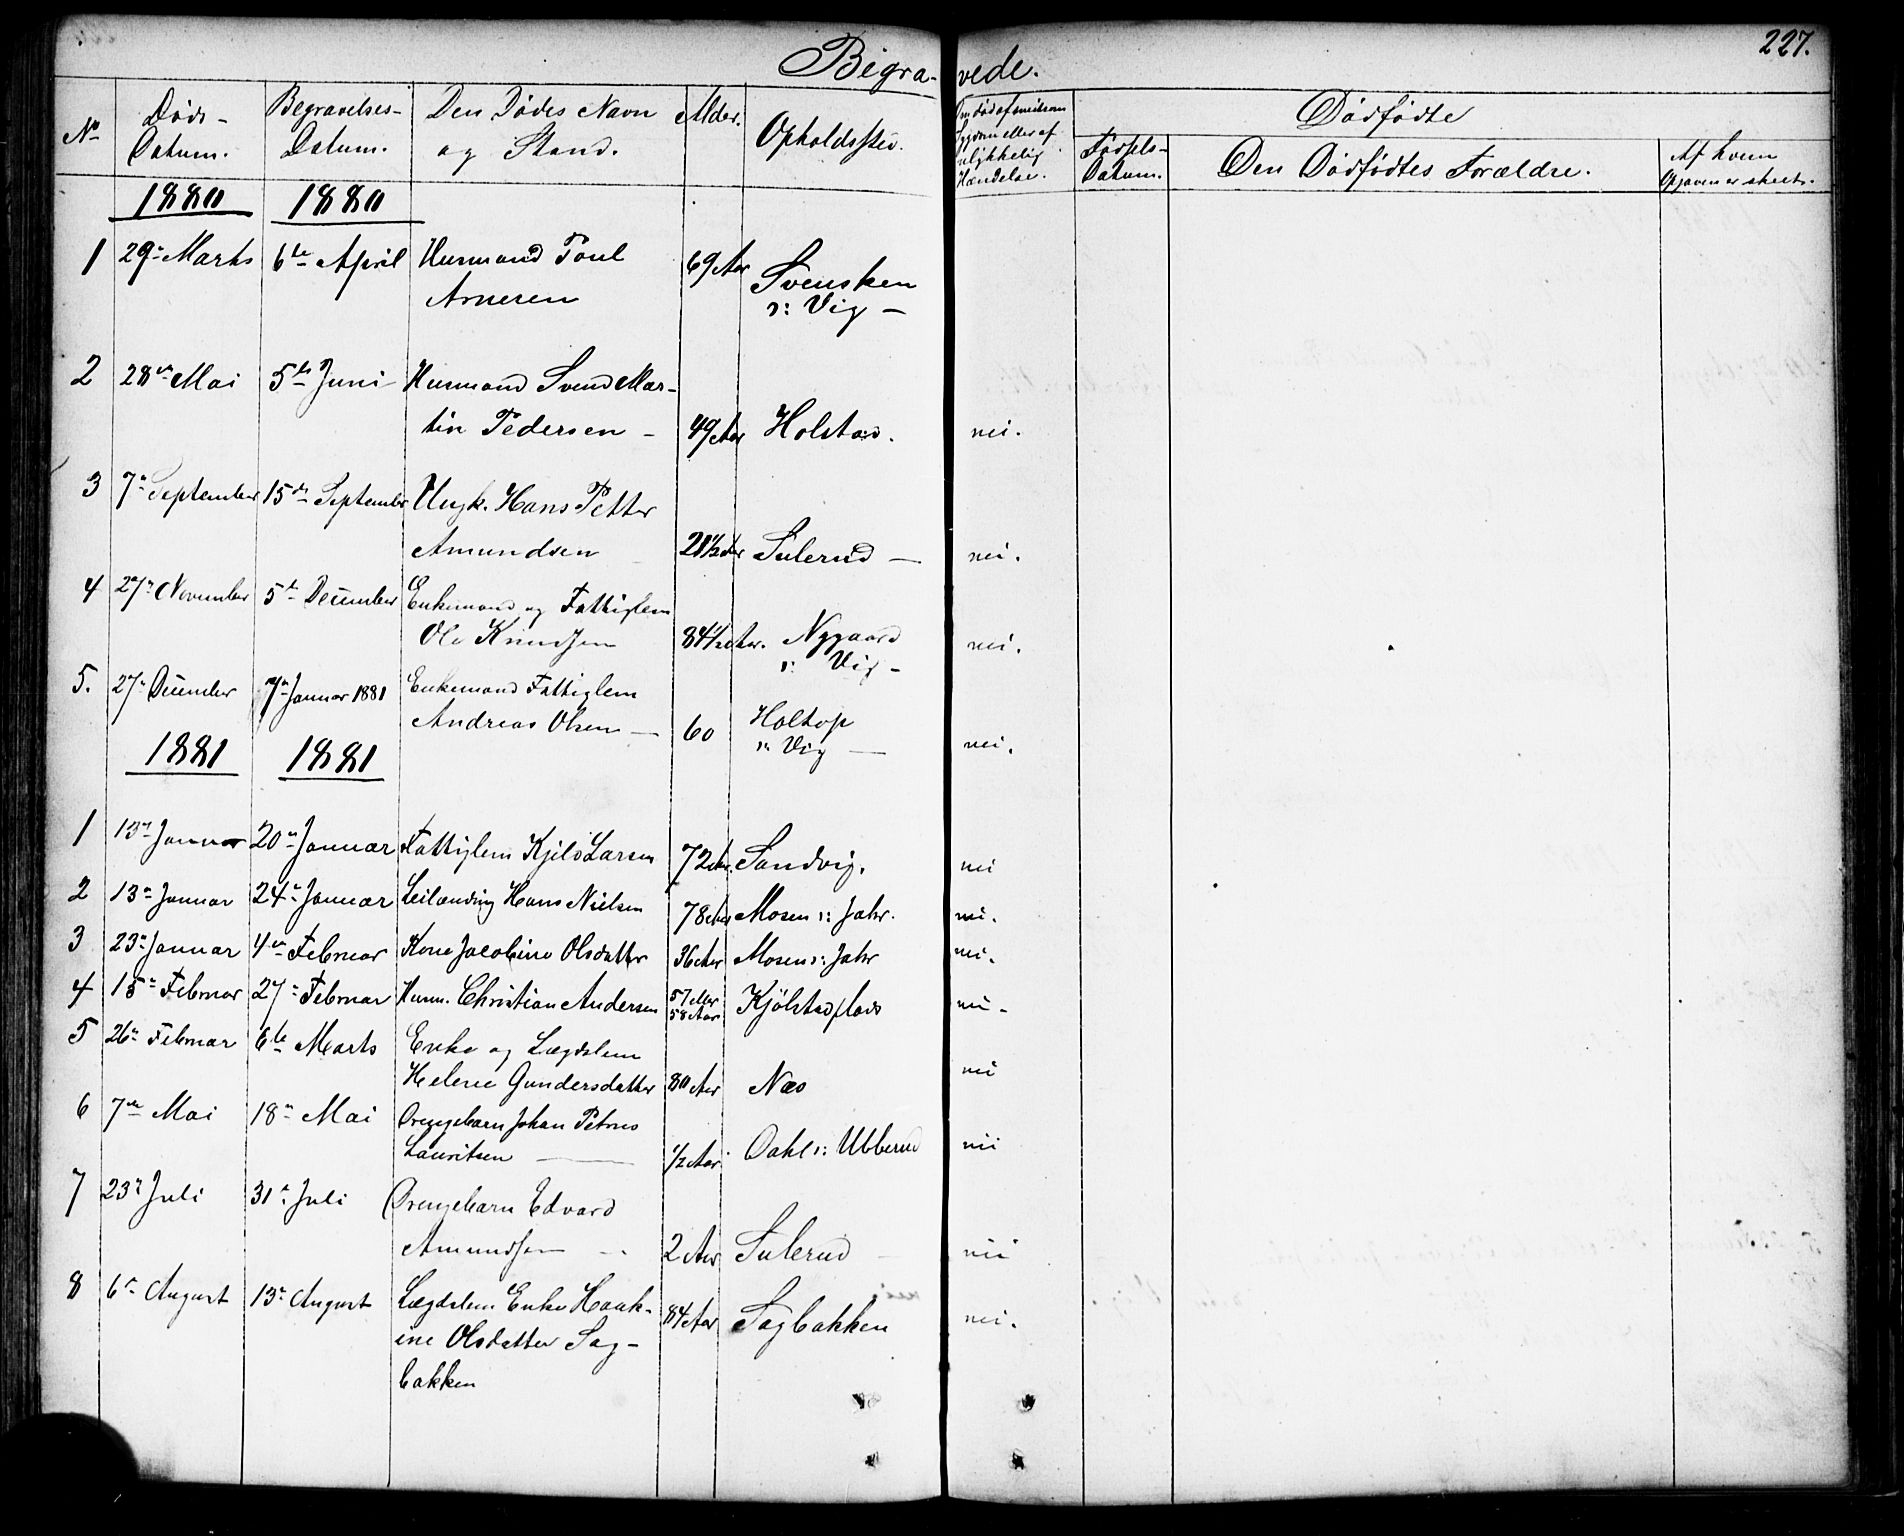 227.
Begravede.
No
Døds-Datum.
Begravelses-Datum.
Den Dødes Navn og Stand.
Alder.
Opholdssted.
Om død af smitsom Sygdom eller af ulykkelig Hændelse.
Dødfødte
Fødsels-Datum.
Den Dødfødtes Forældre.
Af hvem Opgaven er skeet.
1880 1880
1 29de Marts 6te April Husmand Poul 69 Aar Svensken
Arnesen ɔ: Vig —
2 28de Mai 5te Juni Husmand Svend Mar-
tin Pedersen — 49 Aar Holstad. nei.
3 7de September 15de September Ungk. Hans Petter
Amundsen 21½ Aar Sulerud — nei.
4 27de November 5te December Enkemand og Fattiglem
Ole Knudsen 84½ Aar. Nygaard nei.
ɔ: Vig —
5. 27de December 7de Januar 1881 Enkemand Fattiglem
Andreas Olsen — 60 Holtop nei.
ɔ: Vig —
1881 1881
1 13de Januar 20de Januar Fattiglem Kjeld Larsen 72 Aar. Sandvig. nei
2 13de Januar 24de Januar Leilænding Hans Nielsen 78 Aar Mosen ɔ: Jahr. nei.
3 23de Januar 4de Februar Kone Jacobine Olsdatter 36 Aar Mosen ɔ: Jahr nei.
4 15de Februar 27de Februar Husm. Christian Andersen 57 Aar Kjølstadflads nei.
58 Aar
5 26de Februar 6te Marts Enke og Lægdslem
Helene Gundersdatter 80 Aar Næs nei
6 7de Mai 18de Mai Drengebarn Johan Petrus
Lauritsen — ½ Aar Dahl ɔ: Ubberud nei
7 23de Juli 31te Juli Drengebarn Edvard
Amundsen — 2 Aar Sulerud nei
8 6te August 13de August Lægdslem Enke Haak- 84 Aar Sagbakken nei.
ine Olsdatter Sag-
bakken